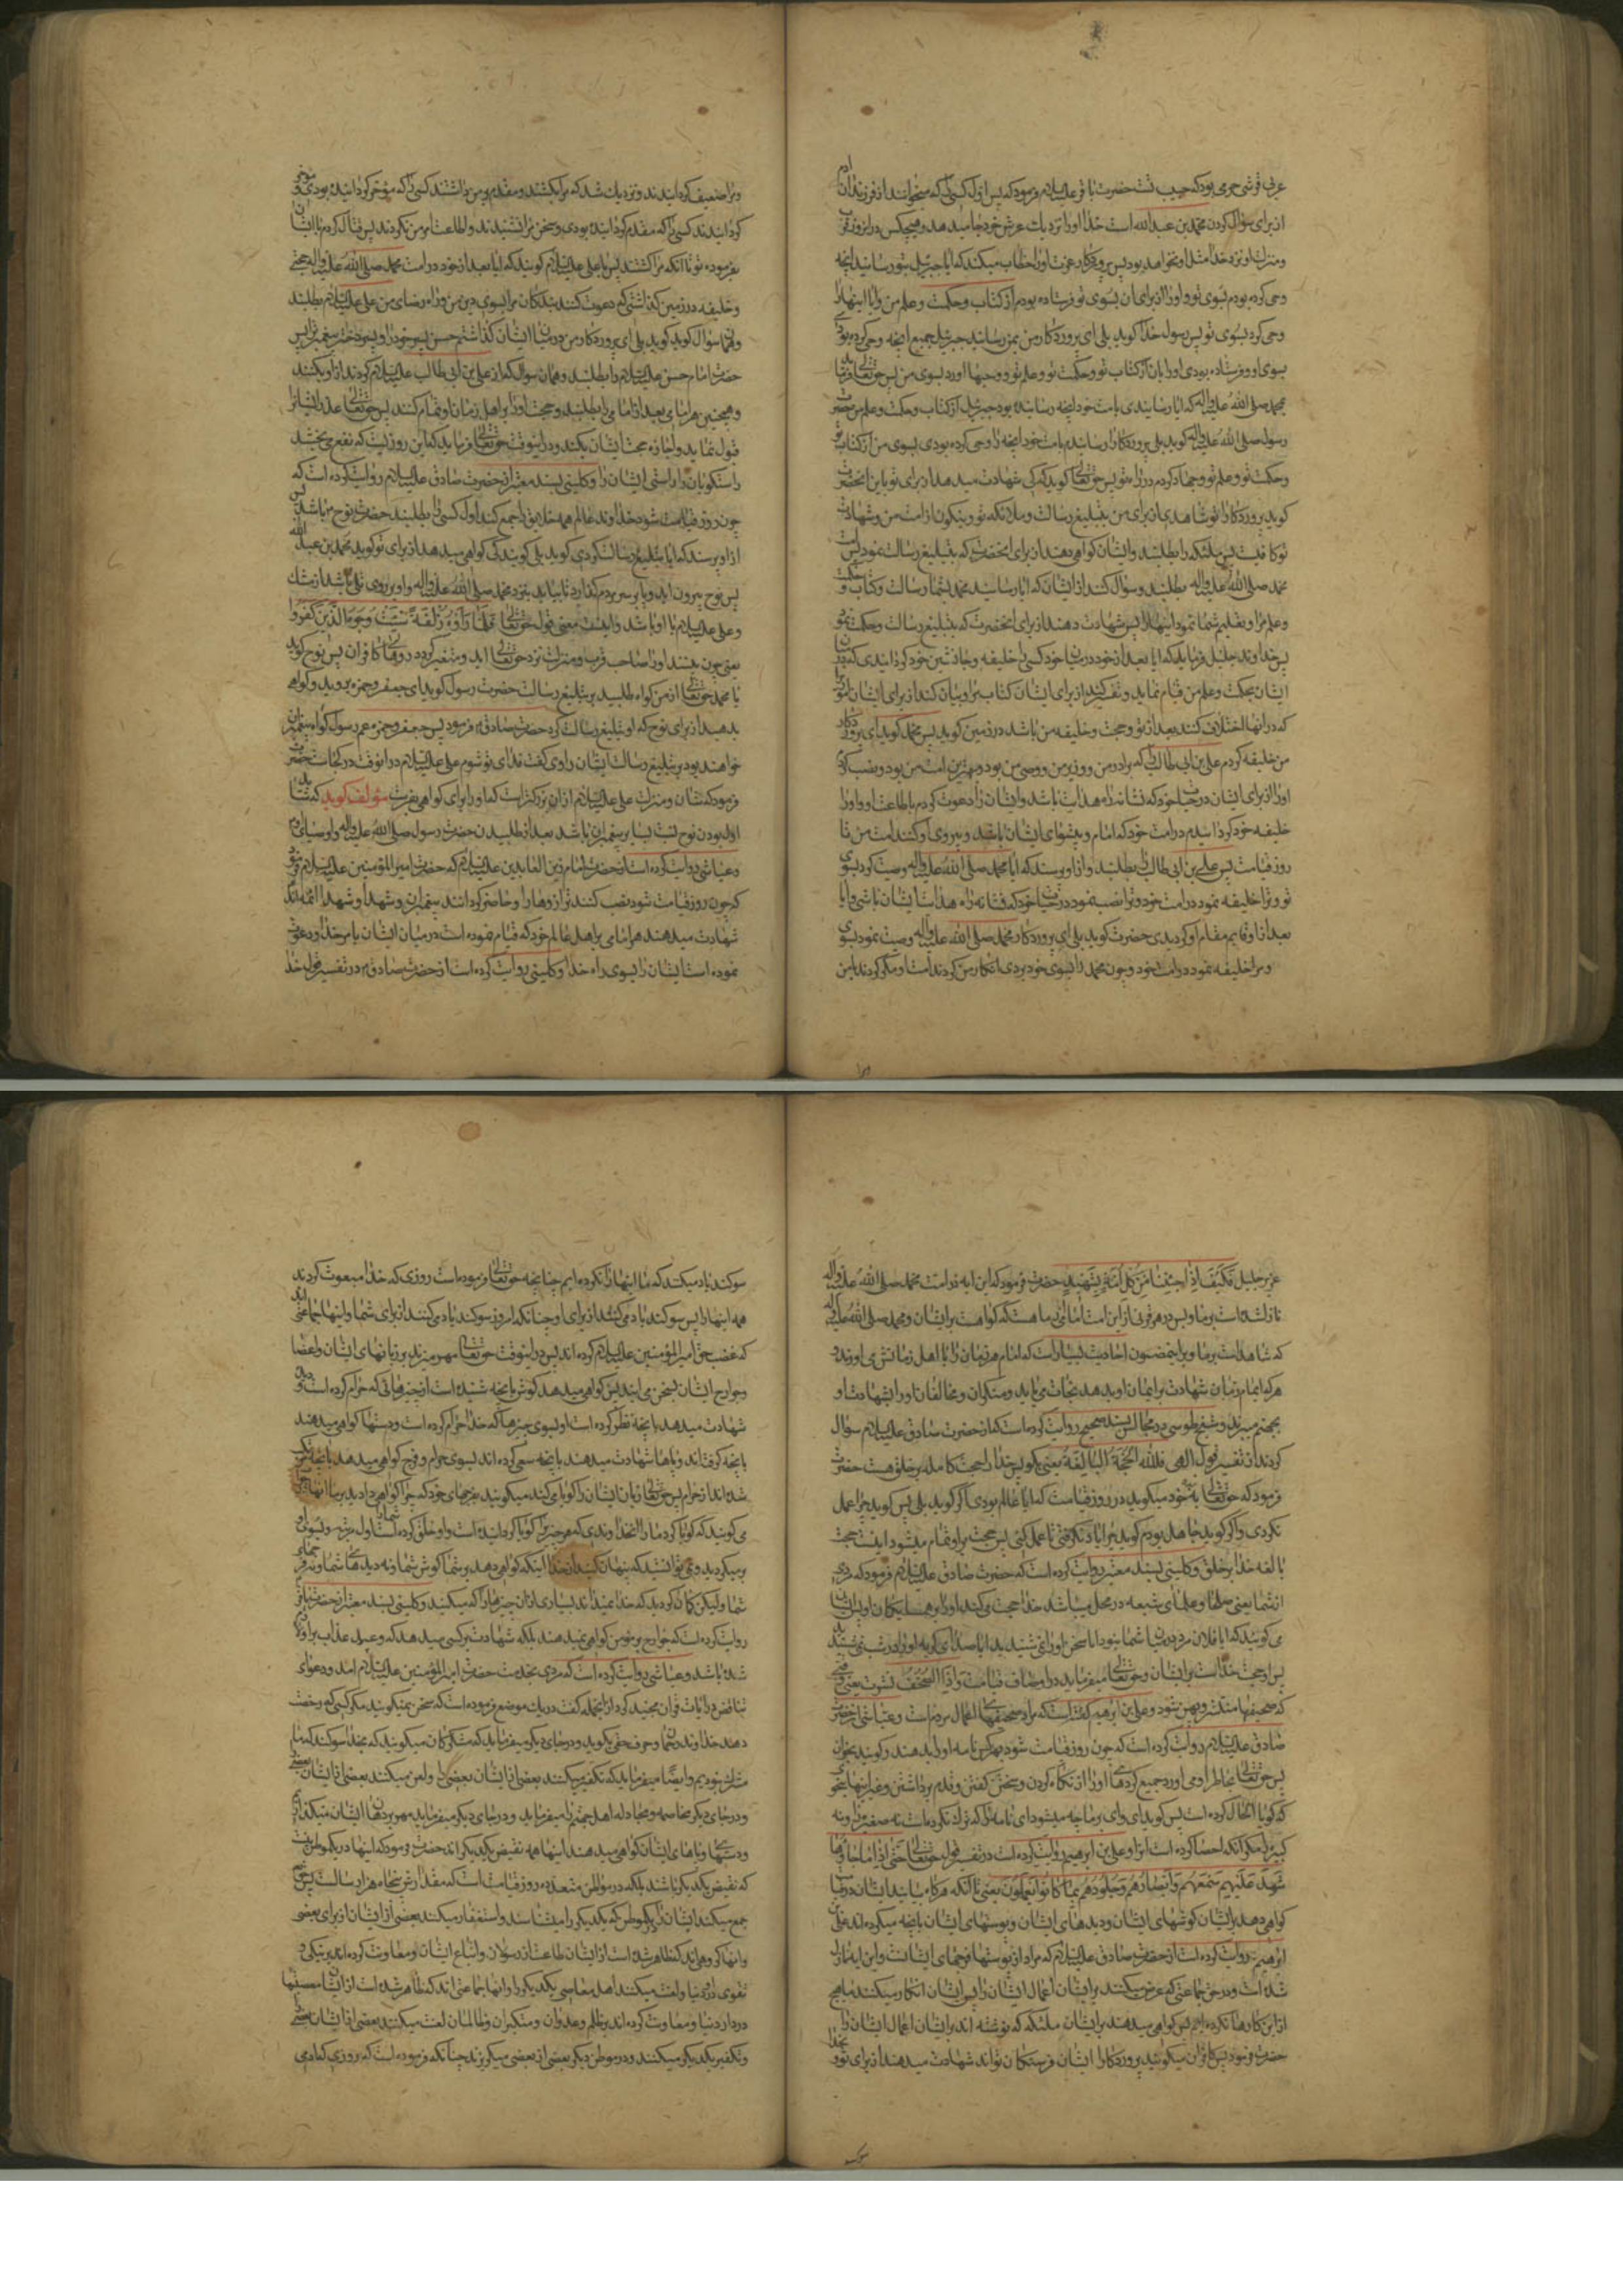 عربی قرشی حرمی بود که حبیب تست حضرت باقر علیه السلام فرمود که پس اول کسی که میخوانند از فرزندان آدم
از برای سؤال کردن محمد بن عبدالله است خدا او را نزدیک عرش خود جا میدهد و هیچکس در انروز قرب
ومنزلت او نزد خدا مثل او نخواهد بود پس پروردکار عزت او را خطاب میکند که ایا جبرئیل بتو رسانید انچه
وحی کرده بودم بسوی تو واو را از برای ان بسوی تو فرستاده بودم از کتاب وحکمت وعلم من وایا اینها را
وحی کرد بسوی تو پس رسول خدا کوید بلی ای پروردکار من بمن رسانید جبرئیل جمیع انچه وحی کرده بودی
بسوی او وفرستاده بودی او را بان از کتاب تو وحکمت تو وعلم تو ووحیها اورد بسوی من پس حق تعالی فرماید
بمحمد صلی الله علیه واله که ایا رسانیدی بامت خود انچه رسانیده بود جبرئیل از کتاب وحکمت وعلم من حضرت
رسول صلی الله علیه واله کوید بلی پروردکارا رسانیدم بامت خود انچه را وحی کرده بودی بسوی من از کتاب تو
وحکمت تو وعلم تو وجهاد کردم در راه تو پس حق تعالی کوید که کی شهادت میدهد از برای تو باین انحضرت
کوید پروردکارا تو شاهدی از برای من بتبلیغ رسالت وملائکه تو ونیکون از امت من وشهادت
تو کافیست پس ملئکه را بطلبند وایشان کواهی دهند از برای انحضرت که بتبلیغ رسالت نمود پس امت
محمد صلی الله علیه واله بطلبند وسؤال کنند از ایشان که ایا رسانید محمد بشما رسالت وکتاب وحکمت
وعلم مرا وتعلیم شما نمود اینها را پس شهادت دهند از برای انحضرت که بتبلیغ رسالت وحکمت نمود
پس خداوند جلیل فرماید که ایا بعد از خود در میان خود کسی را خلیفه وجانشین خود کردانیدی که در
ایشان بحکمت وعلم من قیام نماید وتفسیر کند از برای ایشان کتاب مرا وبیان کند از برای ایشان امور
که در انها اختلاف کنند بعد از تو وحجت وخلیفه من باشد در زمین کوید پس محمد کوید ای پروردکار
من خلیفه کردم علی بن ابی طالب را که برادر من ووزیر من ووصی من بود وبهترین امت من بود ونصب کردم
او را از برای ایشان در حیات خود که نشانه راه هدایت باشد وایشان را دعوت کردم باطاعت او واو را
خلیفه خود کردانیدم در امت خود که امام وپیشوای ایشان باشد وپیروی او کنند امت من تا
روز قیامت پس علی بن ابی طالب را بطلبند واز او پرسند که ایا محمد صلی الله علیه واله وصیت کرد بسوی
تو وترا خلیفه نمود در امت خود وترا نصب نمود در حیات خود که نشانه راه هدایت ایشان باشی وایا
بعد از او قایم مقام او کردیدی حضرت کوید بلی ای پروردکار محمد صلی الله علیه واله وصیت نمود بسوی
ومرا خلیفه نمود در امت خود وچون محمد را بسوی خود بردی انکار من کردند امت او ومکر کردند با من
ومرا ضعیف کردانیدند ونزدیک شد که مرا بکشند ومقدم بر من داشتند کسی را که مؤخر کردانیده بودی ومؤخر
کردانیدند کسی را که مقدم کردانیده بودی وسخن مرا نشنیدند واطاعت امر من نکردند پس قتال کردم با ایشان
بفرموده تو تا انکه مرا کشتند پس با علی علیه السلام کویند که ایا بعد از خود در امت محمد صلی الله علیه واله حجتی
وخلیفه در زمین کذاشتی که دعوت کنند بندکان مرا بسوی دین من وراه رضای من علی علیه السلام
کوید بلی ای پروردکار من در میان ایشان کذاشتم حسن پسر خود را وپسر دختر پیغمبر ترا پس
حضرت امام حسن علیه السلام را بطلبند وهمان سؤال که از علی بن ابی طالب علیه السلام کردند از او بکنند
وهمچنین هر امامی بعد از امامی را بطلبند وحجت او را بر اهل زمان او تمام کنند پس حق تعالی عذر ایشان را
قبول نماید واجازه حجت ایشان بکند ودر اینوقت حق تعالی فرماید که این روزیست که نفع می بخشد
راستکویان را راستی ایشان را وکلینی بسند معتبر از حضرت صادق علیه السلام روایت کرده است که
چون روز قیامت شود خداوند عالم همه خلایق را جمع کند اول کسی را بطلبند حضرت نوح میباشد پس
از او پرسند که ایا تبلیغ رسالت کردی کوید بلی کویند کی کواهی میدهد از برای تو کوید محمد بن عبدالله
پس نوح بیرون اید وپا بر سر مردم کذارد تا بیاید بنزد محمد صلی الله علیه واله واو بر روی تلی باشد از مشک
وعلی علیه السلام با او باشد واینست معنی قول حق تعالی فلما راوه زلفة سیئت وجوه الذین کفروا
یعنی چون بینند او را صاحب قرب ومنزلت نزد حق تعالی اید ومتغیر کردد روهای کافران پس نوح کوید
یا محمد حق تعالی از من کواه طلبید بر تبلیغ رسالت حضرت رسول کوید ای جعفر وحمزه بروید وکواهی
بدهید از برای نوح که او تبلیغ رسالت کرد حضرت صادق ع فرمود پس جعفر وحمزه عم رسول کواه پیغمبران
خواهند بود بر تبلیغ رسالت ایشان راوی کفت فدای تو شوم علی علیه السلام در انوقت در کجاست حضرت
فرمود که شان ومنزلت علی علیه السلام از ان بزرکتر است که او را برای کواهی بفرستند مؤلف کوید که شاید
اول بودن نوح نسبت بسایر پیغمبران باشد بعد از طلبیدن حضرت رسول صلی الله علیه واله واوصیای او
وعیاشی روایت کرده است از حضرت امام زین العابدین علیه السلام که حضرت امیر المؤمنین علیه السلام فرمود
که چون روز قیامت شود نصب کنند ترازوها را وحاضر کردانند پیغمبران وشهدا وشهدا ائمه اند
شهادت میدهند هر امامی بر اهل عالم خود که قیام نموده است در میان ایشان بامر خدا ودعوت
نموده است ایشان را بسوی راه خدا وکلینی روایت کرده است از حضرت صادق ع در تفسیر قول خدا
عزیز جلیل فکیف اذا جئنا من کل امة بشهید حضرت فرمود که این ایه در امت محمد صلی الله علیه واله
نازل شده است بر ما وبس در هر قرنی از این امت امامی از ما هست که کواهست بر ایشان ومحمد صلی الله علیه واله
که شاهد است بر ما وباین مضمون احادیث بسیار است که امام هر زمان را با اهل زمانش می اورند و
هر که امام زمان شهادت بر ایمان او بدهد نجات می یابد ومنکران ومخالفان او را بشهادت او
بجهنم میبرند وشیخ طوسی در مجالس بسند صحیح روایت کرده است که از حضرت صادق علیه السلام سؤال
کردند از تفسیر قول الهی فلله الحجة البالغة یعنی بکو پس خدا را حجت کامله بر خلق هست حضرت
فرمود که حق تعالی به خود میکوید در روز قیامت که ایا عالم بودی اکر کوید بلی پس کوید چرا عمل
نکردی واکر کوید جاهل بودم کوید چرا یاد نکرفتی تا عمل کنی پس حجت بر او تمام میشود اینست حجت
بالغه خدا بر خلق وکلینی بسند معتبر روایت کرده است که حضرت صادق علیه السلام فرمود که مردی
از شما یعنی صلحا وعلمای شیعه در محل میباشد خدا حجت میکند او را بر همسایکان او پس بایشان
می کویند که ایا فلان مرد در میان شما نبود ایا سخن او را نمی شنیدید ایا صدای کریه او را در شب نمی شنیدید
پس او حجت خداست بر ایشان وحق تعالی میفرماید در اوصاف قیامت واذا الصحف نشرت یعنی وقتی
که صحیفها منتشر وپهن شود وعلی بن ابراهیم کفته است که مراد صحیفهای اعمال مردم است وعیاشی از حضرت
صادق علیه السلام روایت کرده است که چون روز قیامت شود بهر کس نامه او را بدهند وکویند بخوان
پس حق تعالی بخاطر او می اورد جمیع کردهای او را از نکاه کردن وسخن کفتن وقدم برداشتن وغیر اینها بنحوی
که کویا الحال کرده است پس کوید ای وای بر ما چه میشود این نامه را که ترک نکرده است نه صغیره ونه
کبیره را مکر انکه احصا کرده است انرا وعلی بن ابراهیم روایت کرده است در تفسیر قول حق تعالی حتی اذا ما جاؤها
شهد علیهم سمعهم وابصارهم وجلودهم بما کانوا یعملون یعنی تا انکه هر کاه بیایند ایشان در قیامت
کواهی دهد بر ایشان کوشهای ایشان ودیدهای ایشان وپوستهای ایشان بانچه میکرده اند علی بن
ابراهیم روایت کرده است از حضرت صادق علیه السلام که مراد از پوستها فرجهای ایشانست واین ایه نازل
شده است در حق جماعتی که عرض میکنند بر ایشان اعمال ایشان را پس ایشان انکار میکنند ما هیچ
از این کارها نکرده ایم پس کواهی میدهند بر ایشان ملئکه که نوشته اند بر ایشان اعمال ایشان را
حضرت فرمود پس کافران میکویند پروردکارا ایشان فرشتکان تواند شهادت میدهند از برای تو وبخدا
سوکند یاد میکنند که ما اینها را نکرده ایم چنانچه حق تعالی فرموده است روزی که خدا مبعوث کرداند
همه اینها را پس سوکند یاد میکنند از برای او چنانکه امروز سوکند یاد می کنند از برای شما واینها جماعتی اند
که غصب حق امیر المؤمنین علیه السلام کرده اند پس در اینوقت حق تعالی مهر میزند بر زبانهای ایشان واعضا
وجوارح ایشان بسخن می ایند پس کواهی میدهد کوش بانچه شنیده است از چیزهائی که حرام کرده است
شهادت میدهد بانچه نظر کرده است او بسوی چیزها که خدا حرام کرده است ودستها کواهی میدهند
بانچه کرفته اند وپاها شهادت میدهند بانچه سعی کرده اند بسوی حرام وفرج کواهی میدهد بانچه مرتکب
شده اند از حرام پس حق تعالی زبان ایشان را کویا می کند میکویند بفرجهای خود که چرا کواهی دادید بر ما
می کویند که کویا کرد ما را انخداوندی که هر چیز را کویا کردانیده است واو خلق کرده است شما را اول مرتبه وبسوی او
بر میکردید ونمی توانستید که پنهان کنید از خدا اینکه کواهی دهد بر شما کوش شما ونه دیدهای شما ونه فرجهای
شما ولیکن کمان کردید که خدا نمیداند بسیاری از ان چیزها را که میکنید وکلینی بسند معتبر از حضرت باقر
روایت کرده است که جوارح بر مؤمن کواهی نمیدهند بلکه شهادت بر کسی میدهد که وعید عذاب بر او لازم
شده باشد وعیاشی روایت کرده است که مردی بخدمت حضرت امیر المؤمنین علیه السلام امد ودعوای
تناقض در ایات قران مجید کرد از انجمله کفت در یک موضع فرموده است که سخن نمیکویند مکر کسی که رخصت
دهد خداوند رحمان وحرف حق بکوید ودر جای دیکر میفرماید که مشرکان میکویند که بخدا سوکند که ما
مشرک نبودیم وایضا میفرماید که تکفیر میکنند بعضی از ایشان بعضی را ولعن میکنند بعضی از ایشان بعضی
ودر جای دیکر مخاصمه ومجادله اهل جهنم را میفرماید ودر جای دیکر میفرماید مهر بر دهان ایشان میکذاریم
ودستها وپاهای ایشان کواهی میدهند اینها همه نقیض یکدیکر اند حضرت فرمود که اینها در یک موطن نیست
که نقیض یکدیکر باشد بلکه در مواطن متعدده روز قیامت است که مقدارش پنجاه هزار سالست پس
جمع میکند ایشان را در یک موطن که یکدیکر را میشناسند واستغفار میکنند بعضی از ایشان از برای بعضی
وانها کروهی اند که ظاهر شده است از ایشان طاعت از رسولان واتباع ایشان ومعاونت کرده اند بر نیکی و
تقوی در دنیا ولعنت میکنند اهل معاصی یکدیکر را وانها جماعتی اند که ظاهر شده است از ایشان معصیتها
در دار دنیا ومعاونت کرده اند بر ظلم وعدوان ومتکبران وظالمان لعنت میکنند بعضی از ایشان بعضی
وتکفیر یکدیکر میکنند ودر موطن دیکر بعضی از بعضی میکریزند چنانکه فرموده است که روزی که ادمی